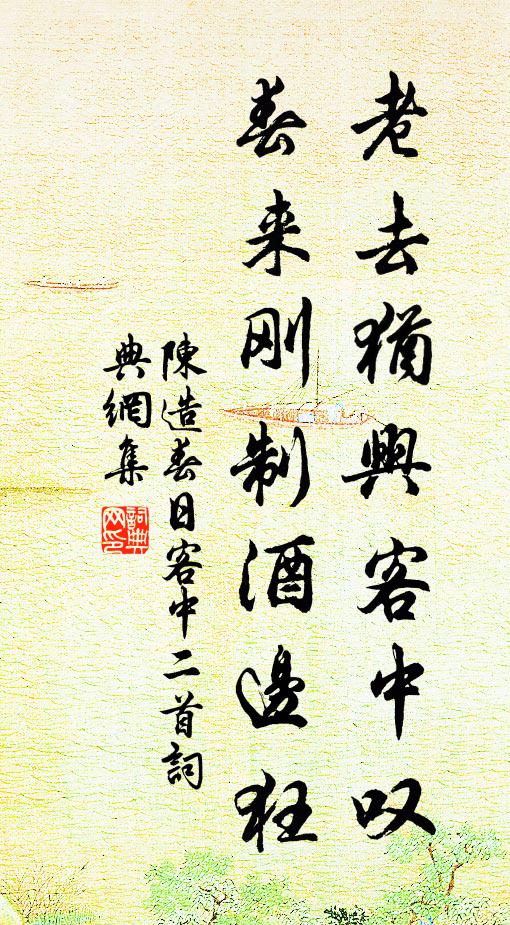 老去猶興客中叹
春来刚制酒邊狂
陳造春日客中二首詞
典網集
詞典网印